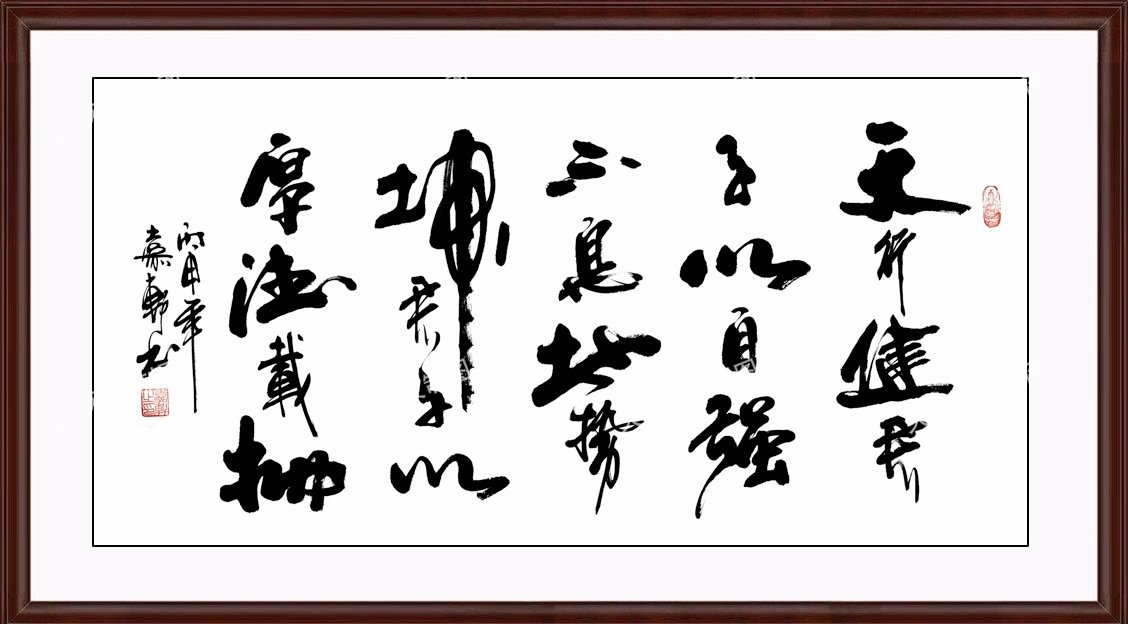 天行健君
子以自强
不息地势
坤君子以
厚德载物
丙申年
嘉轩书